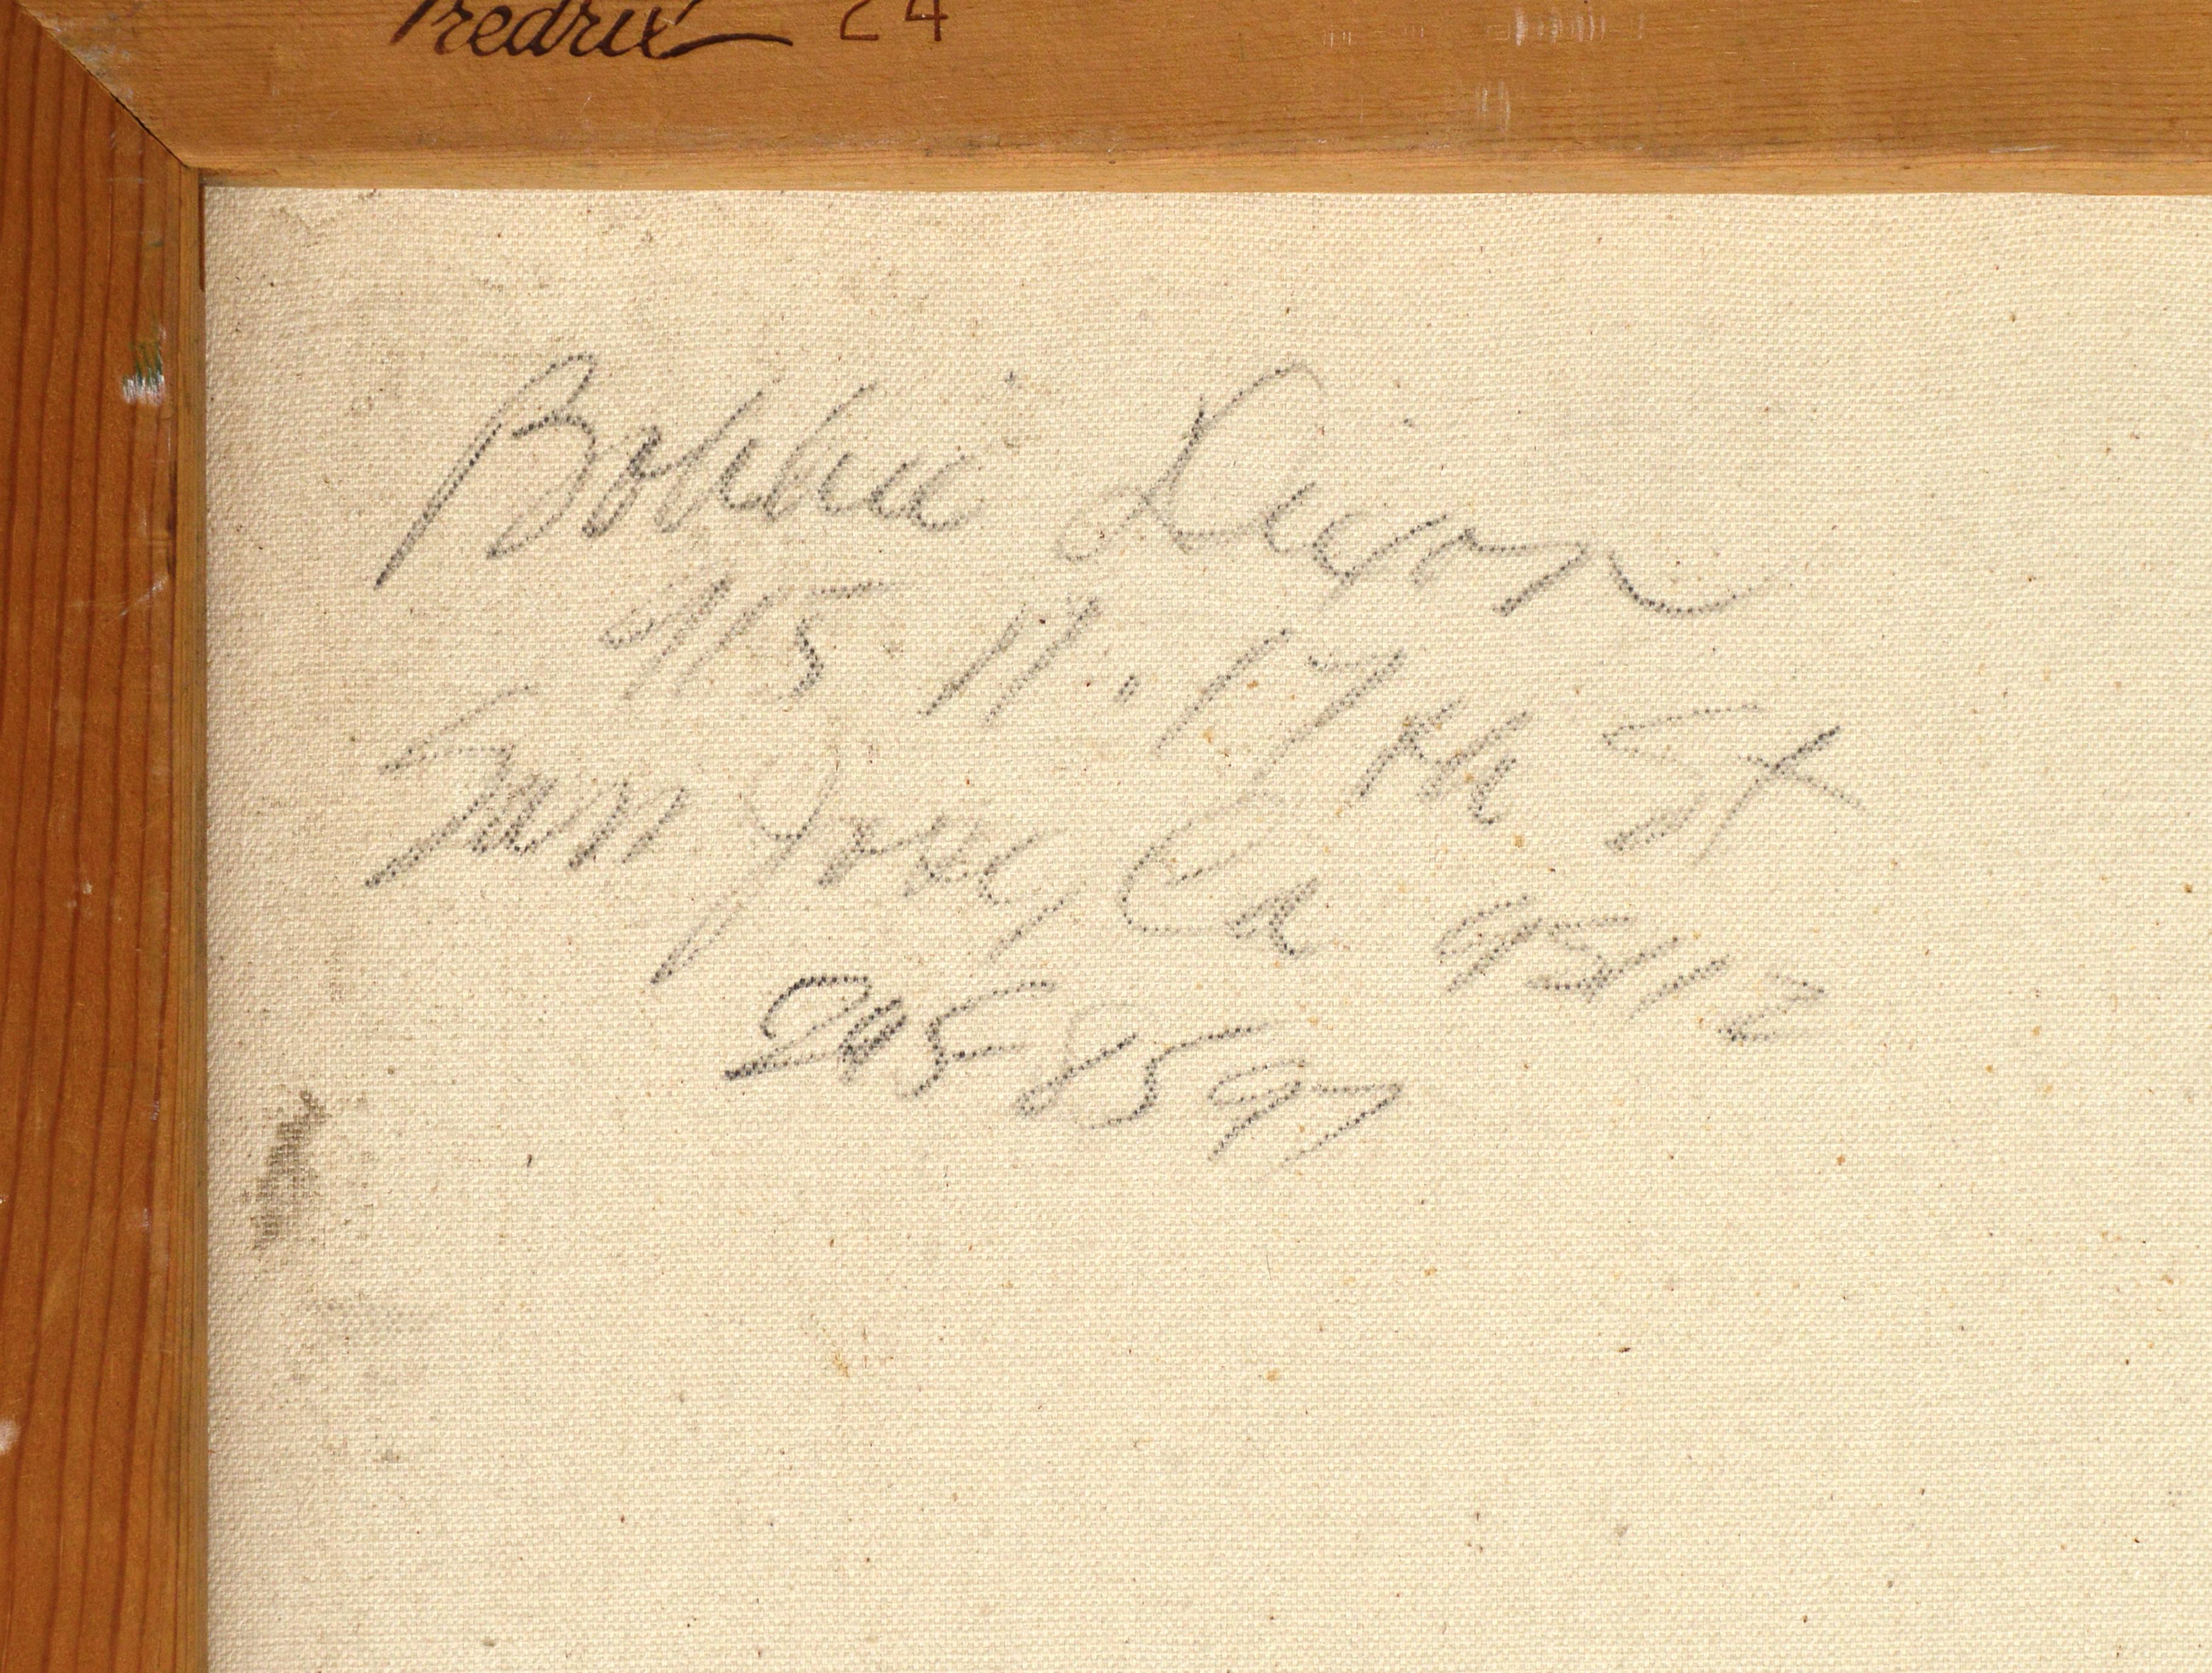 Fredrix 24
Bobbie Dixon
915 N. 17th St
San Jose, Ca 95112
295-8597